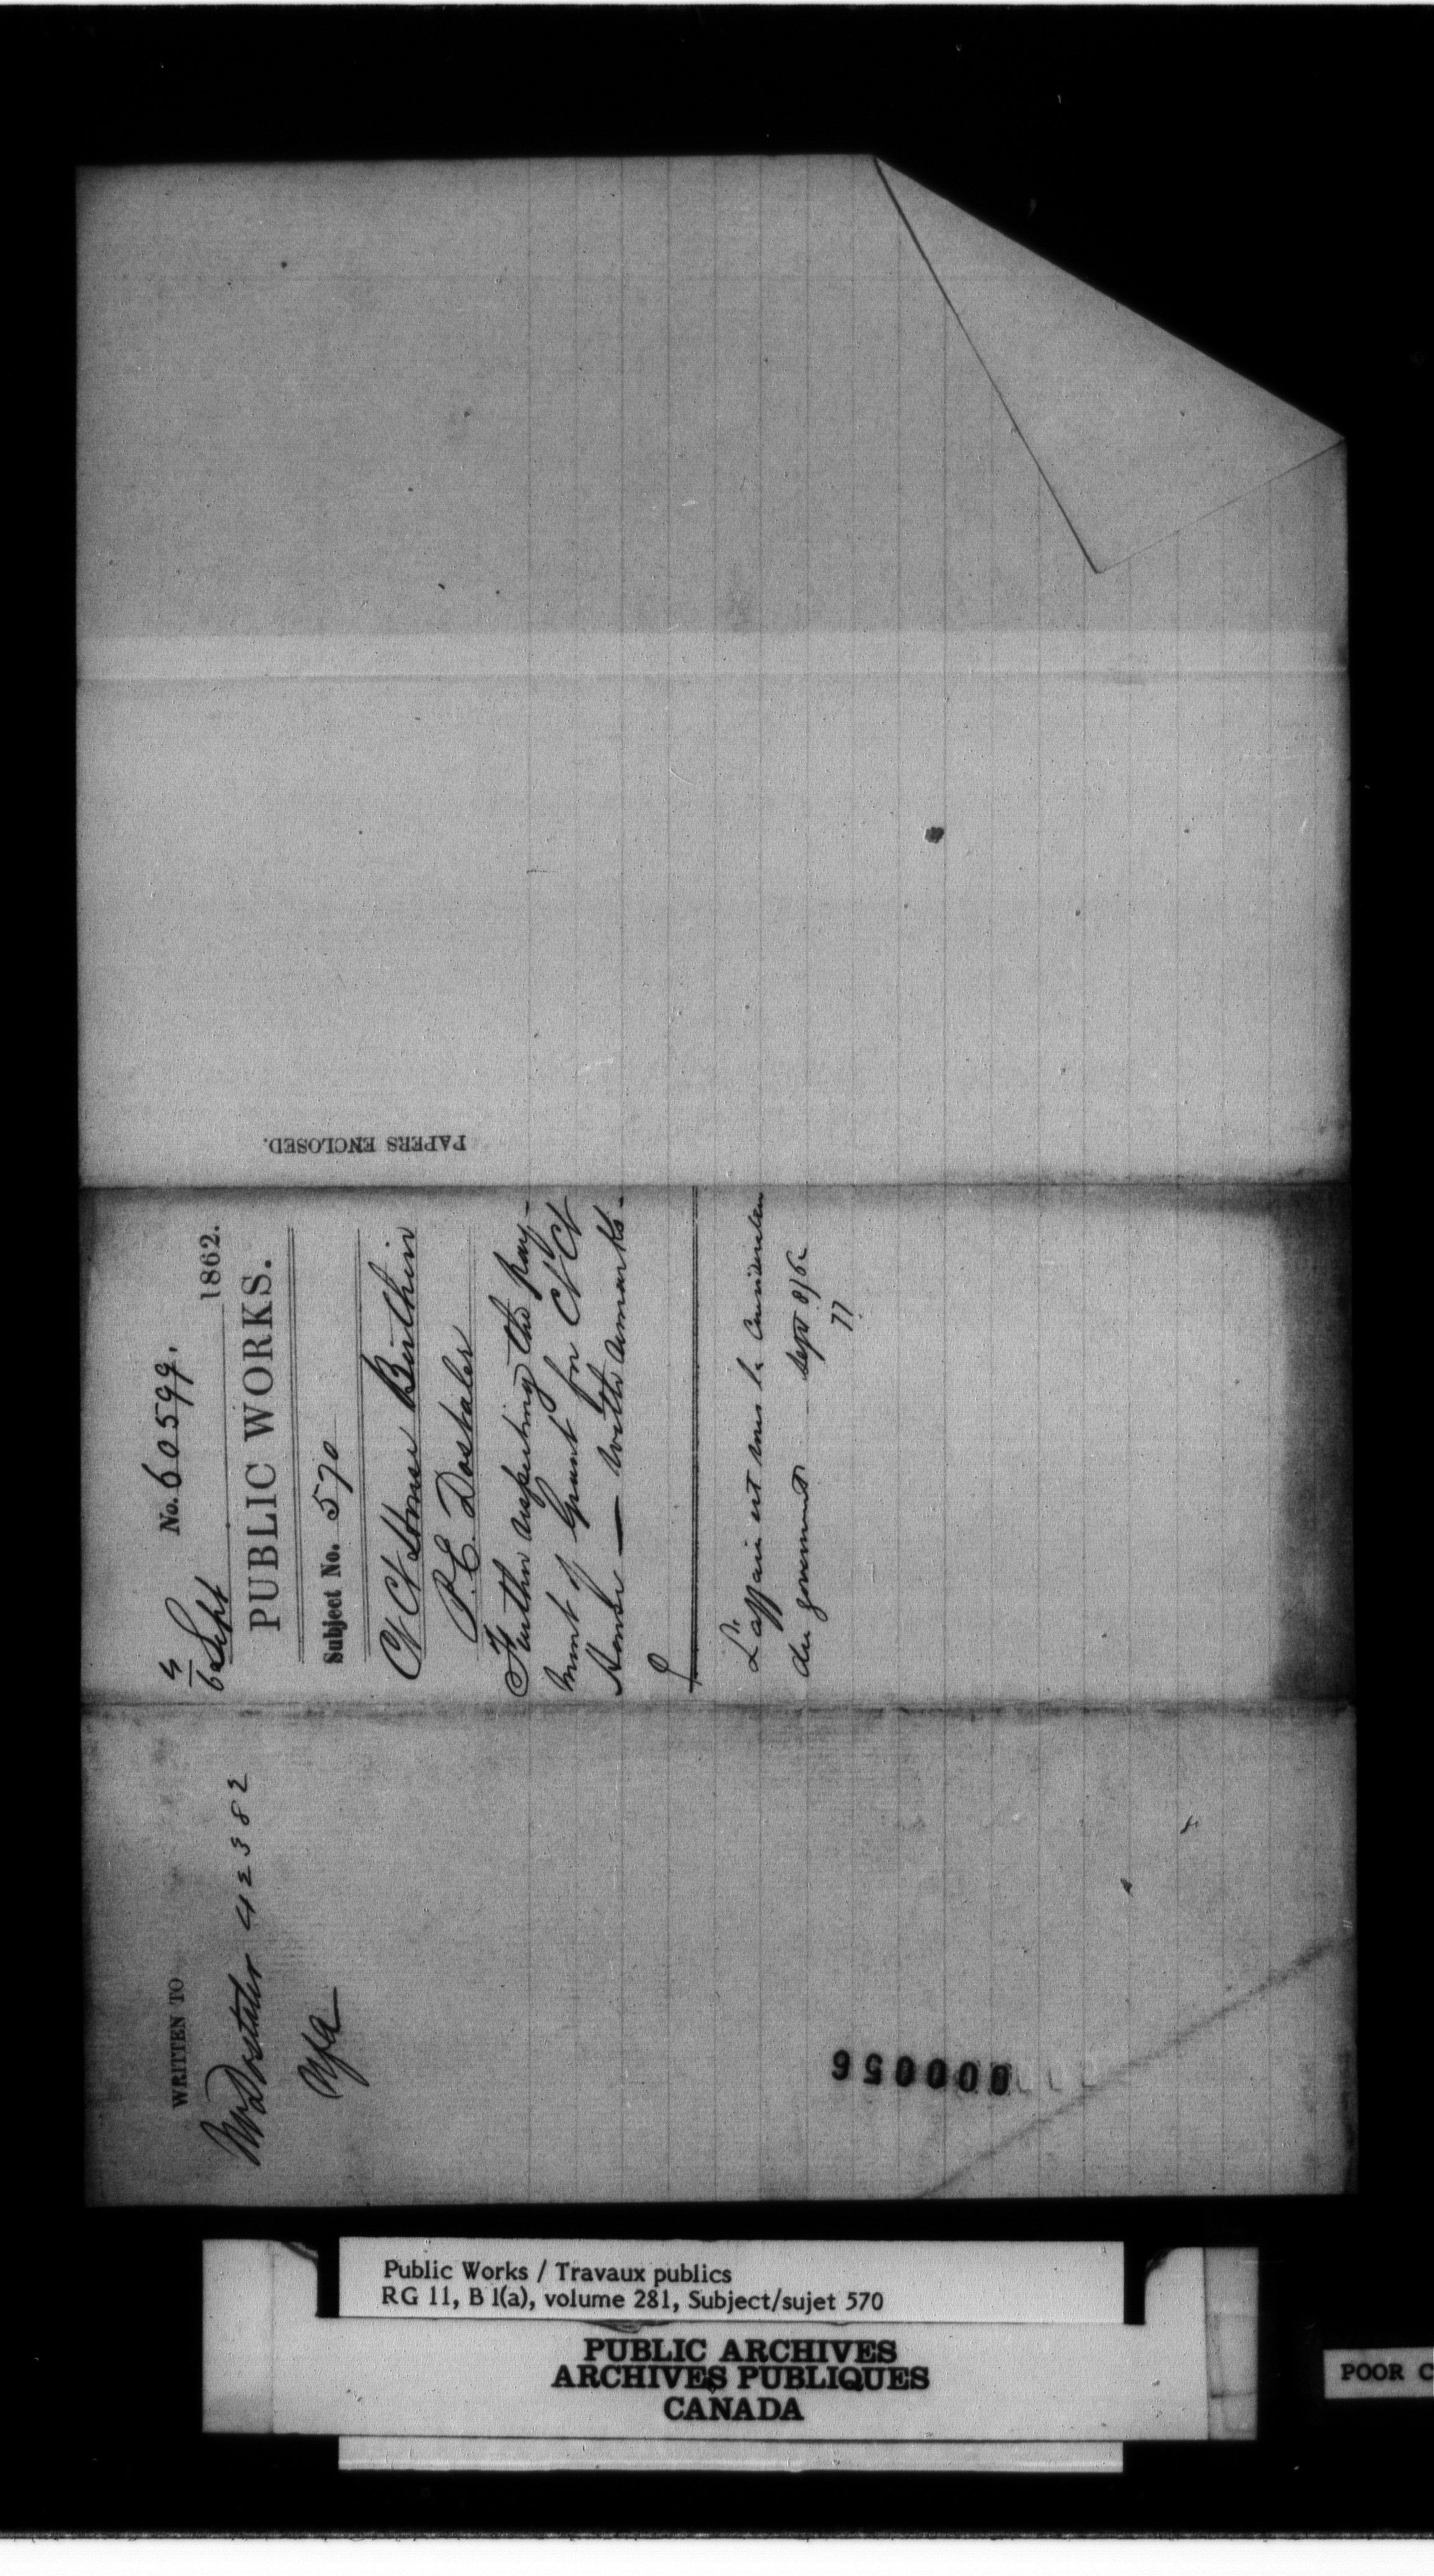 PAPERS ENCLOSED.
No. 60599.
4/6 Sept 1862.
PUBLIC WORKS.
Subject No. 570
Ct House Berthier
P. E. Dostaler
Further respecting the pay-
ment of Grant for Ct
House — with remarks -
L'affaire est sous la Consideration
du gouvernement Sept 8/62
WRITTEN TO
Mr Dostaler 42382
0000056
Public Works / Travaux publics
RG 11, B 1(a), volume 281, Subject/sujet 570
PUBLIC ARCHIVES
ARCHIVES PUBLIQUES
CANADA
POOR C